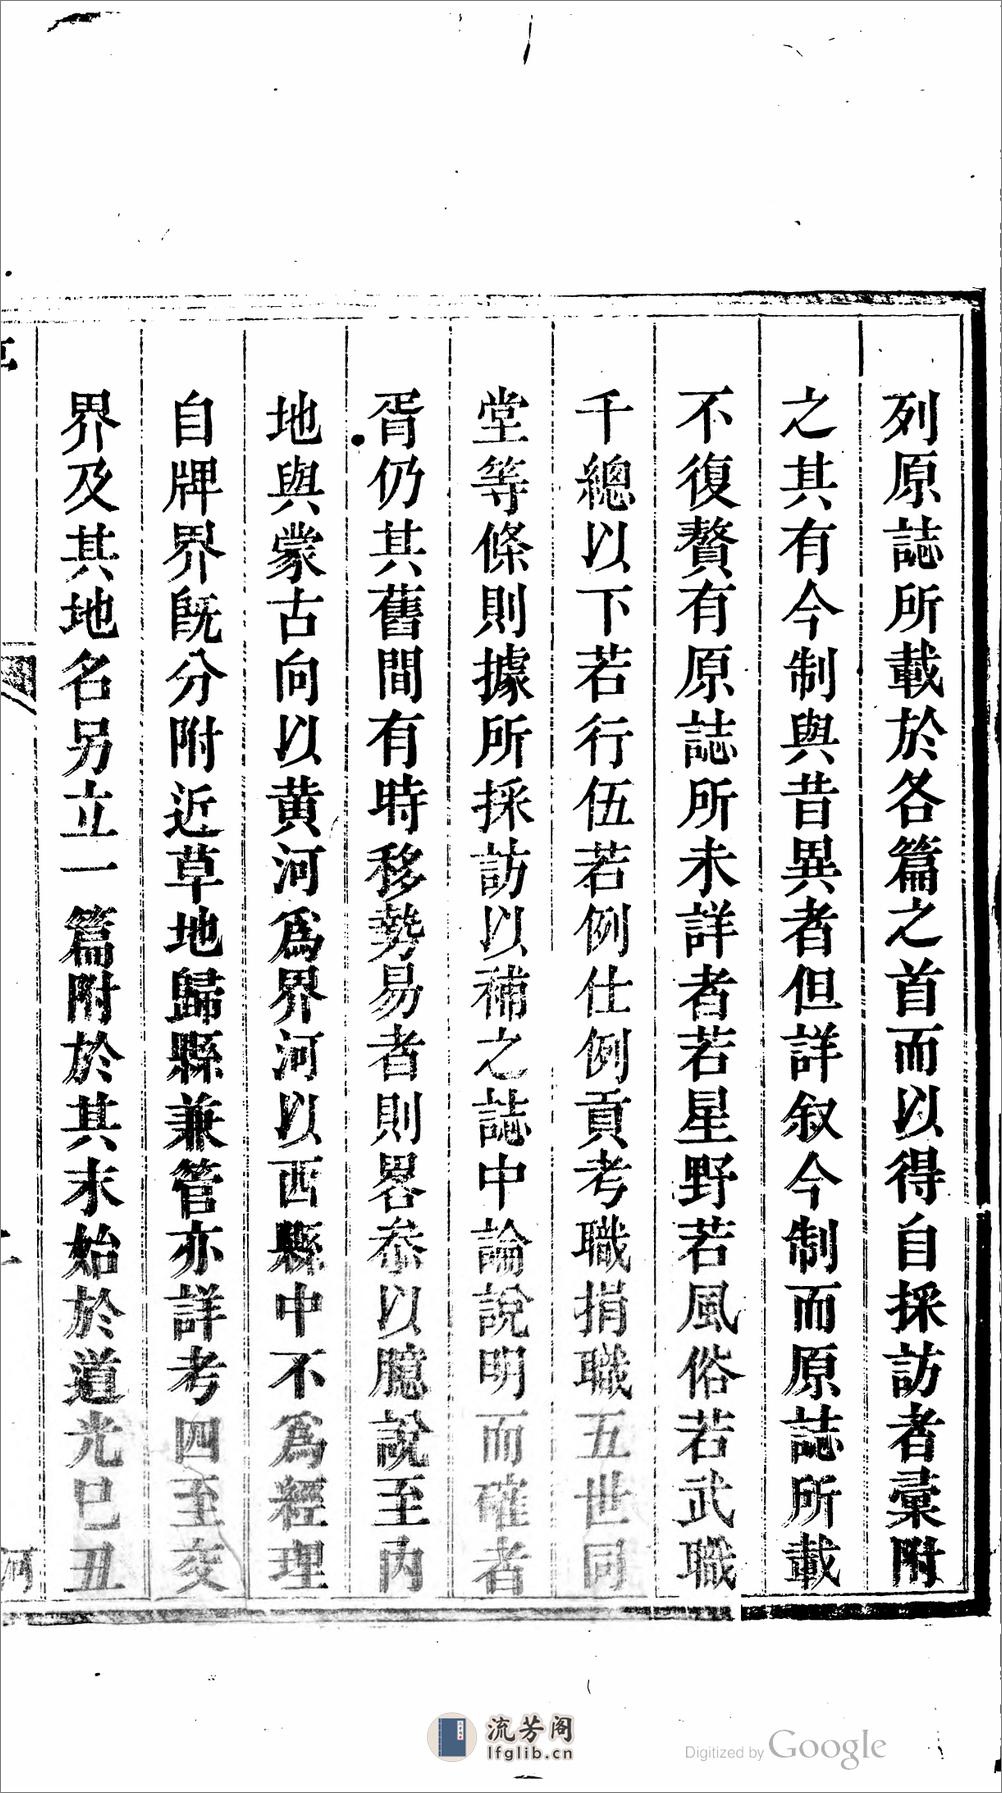 列原誌所載於各篇之首而以得自採訪者彙附
之其有今制與昔異者但詳叙今制而原誌所載
不復贅有原誌所未詳者若星野若風俗若武職
千總以下若行伍若例仕例貢考職捐職五世同
堂等條則據所採訪以補之誌中論說明而確者
胥仍其舊間有時移勢易者則畧叅以臆說至內
地與蒙古向以黄河爲界河以西縣中不爲經理
自牌界旣分附近草地歸縣兼管亦詳考四至交
界及其地名另立一篇附於其末始於道光己丑
流芳阁
lfglib.cn
Digitized by Google